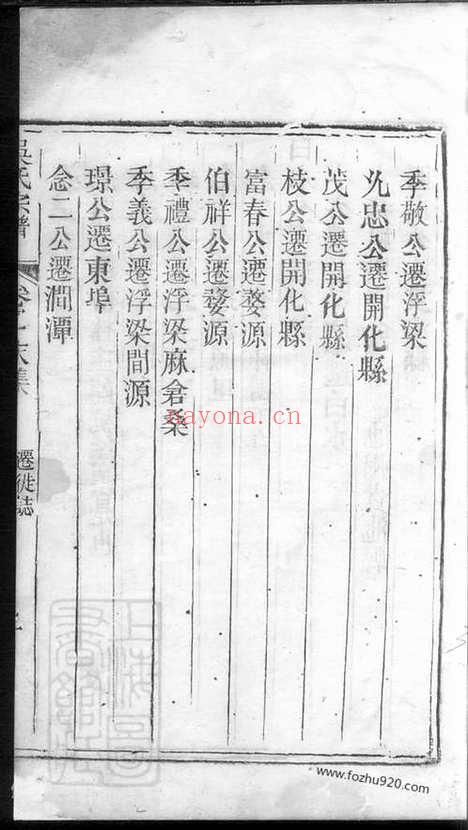 季敬公遷浮梁
允忠公遷開化縣
茂公遷開化縣
枝公遷開化縣
富春公遷婺源
伯祥公遷婺源
季禮公遷浮梁麻倉桑
季義公遷浮梁間源
璟公遷東埠
念二公遷澗潭
吳氏宗譜
遷徙誌
nayona.cn
www.fozhu920.com